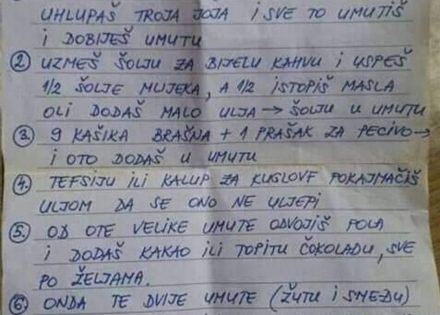 UHLUPAŠ TROJA JOJA I SVE TO UMUTIŠ
I DOBIJEŠ UMUTU
2. UZMEŠ ŠOLJU ZA BIJELU KAHVU I USPEŠ
1/2 ŠOLJE MLJEKA, A 1/2 ISTOPIŠ MASLA
OLI DODAŠ MALO ULJA → ŠOLJU U UMUTU
3. 9 KAŠIKA BRAŠNA + 1 PRAŠAK ZA PECIVO →
I OTO DODAŠ U UMUTU
4. TEFSIJU ILI KALUP ZA KUGLOVF POKAJMAČIŠ
ULJOM DA SE ONO NE ULJEPI
5. OD OTE VELIKE UMUTE ODVOJIŠ POLA
I DODAŠ KAKAO ILI TOPITU ČOKOLADU, SVE
PO ŽELJAMA.
6. ONDA TE DVIJE UMUTE (ŽUTU I SMEĐU)